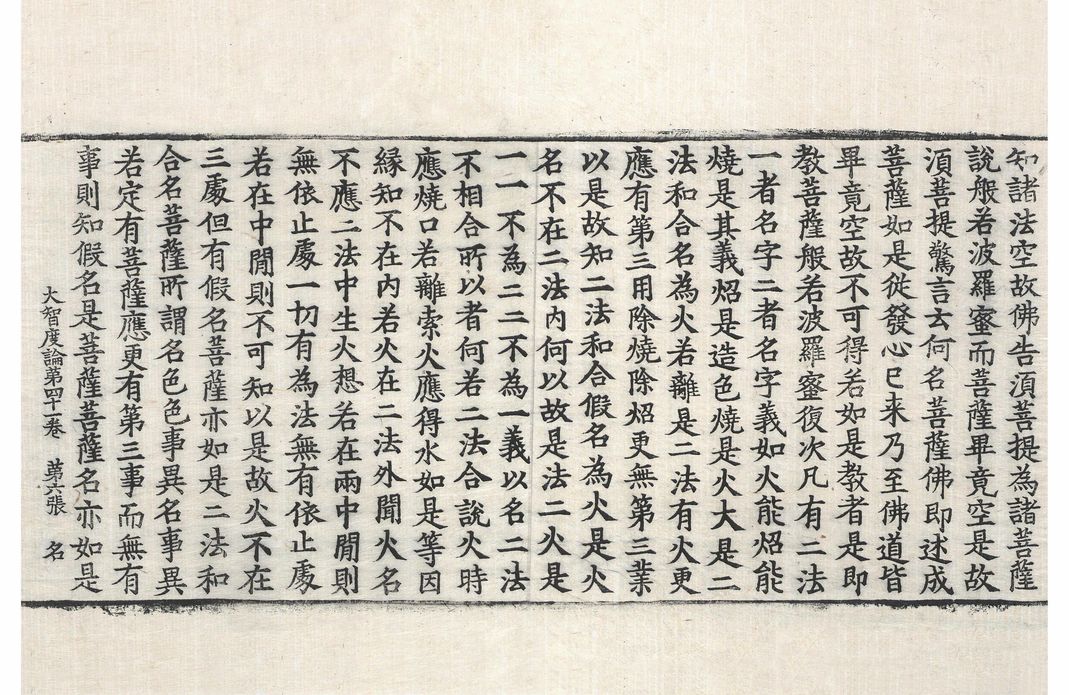 知諸法空故佛告湏菩提為諸菩薩
說般若波羅蜜而菩薩畢竟空是故
湏菩提驚言云何名菩薩佛即述成
菩薩如是從發心已来乃至佛道皆
畢竟空故不可得若如是教者是即
教菩薩般若波羅蜜復次凡有二法
一者名字二者名字義如火能炤能
燒是其義炤是造色燒是火大是二
法和合名為火若離是二法有火更
應有第三用除燒除炤更無第三業
以是故知二法和合假名為火是火
名不在二法內何以故是法二火是
一一不為二二不為一義以名二法
不相合所以者何若二法合說火時
應燒口若離索火應得水如是等因
縁知不在內若火在二法外聞火名
不應二法中生火想若在兩中閒則
無依止處一切有為法無有依止處
若在中閒則不可知以是故火不在
三處但有假名菩薩亦如是二法和
合名菩薩所謂名色色事異名事異
若定有菩薩應更有第三事而無有
事則知假名是菩薩菩薩名亦如是
大智度論第四十一卷　第六張　名